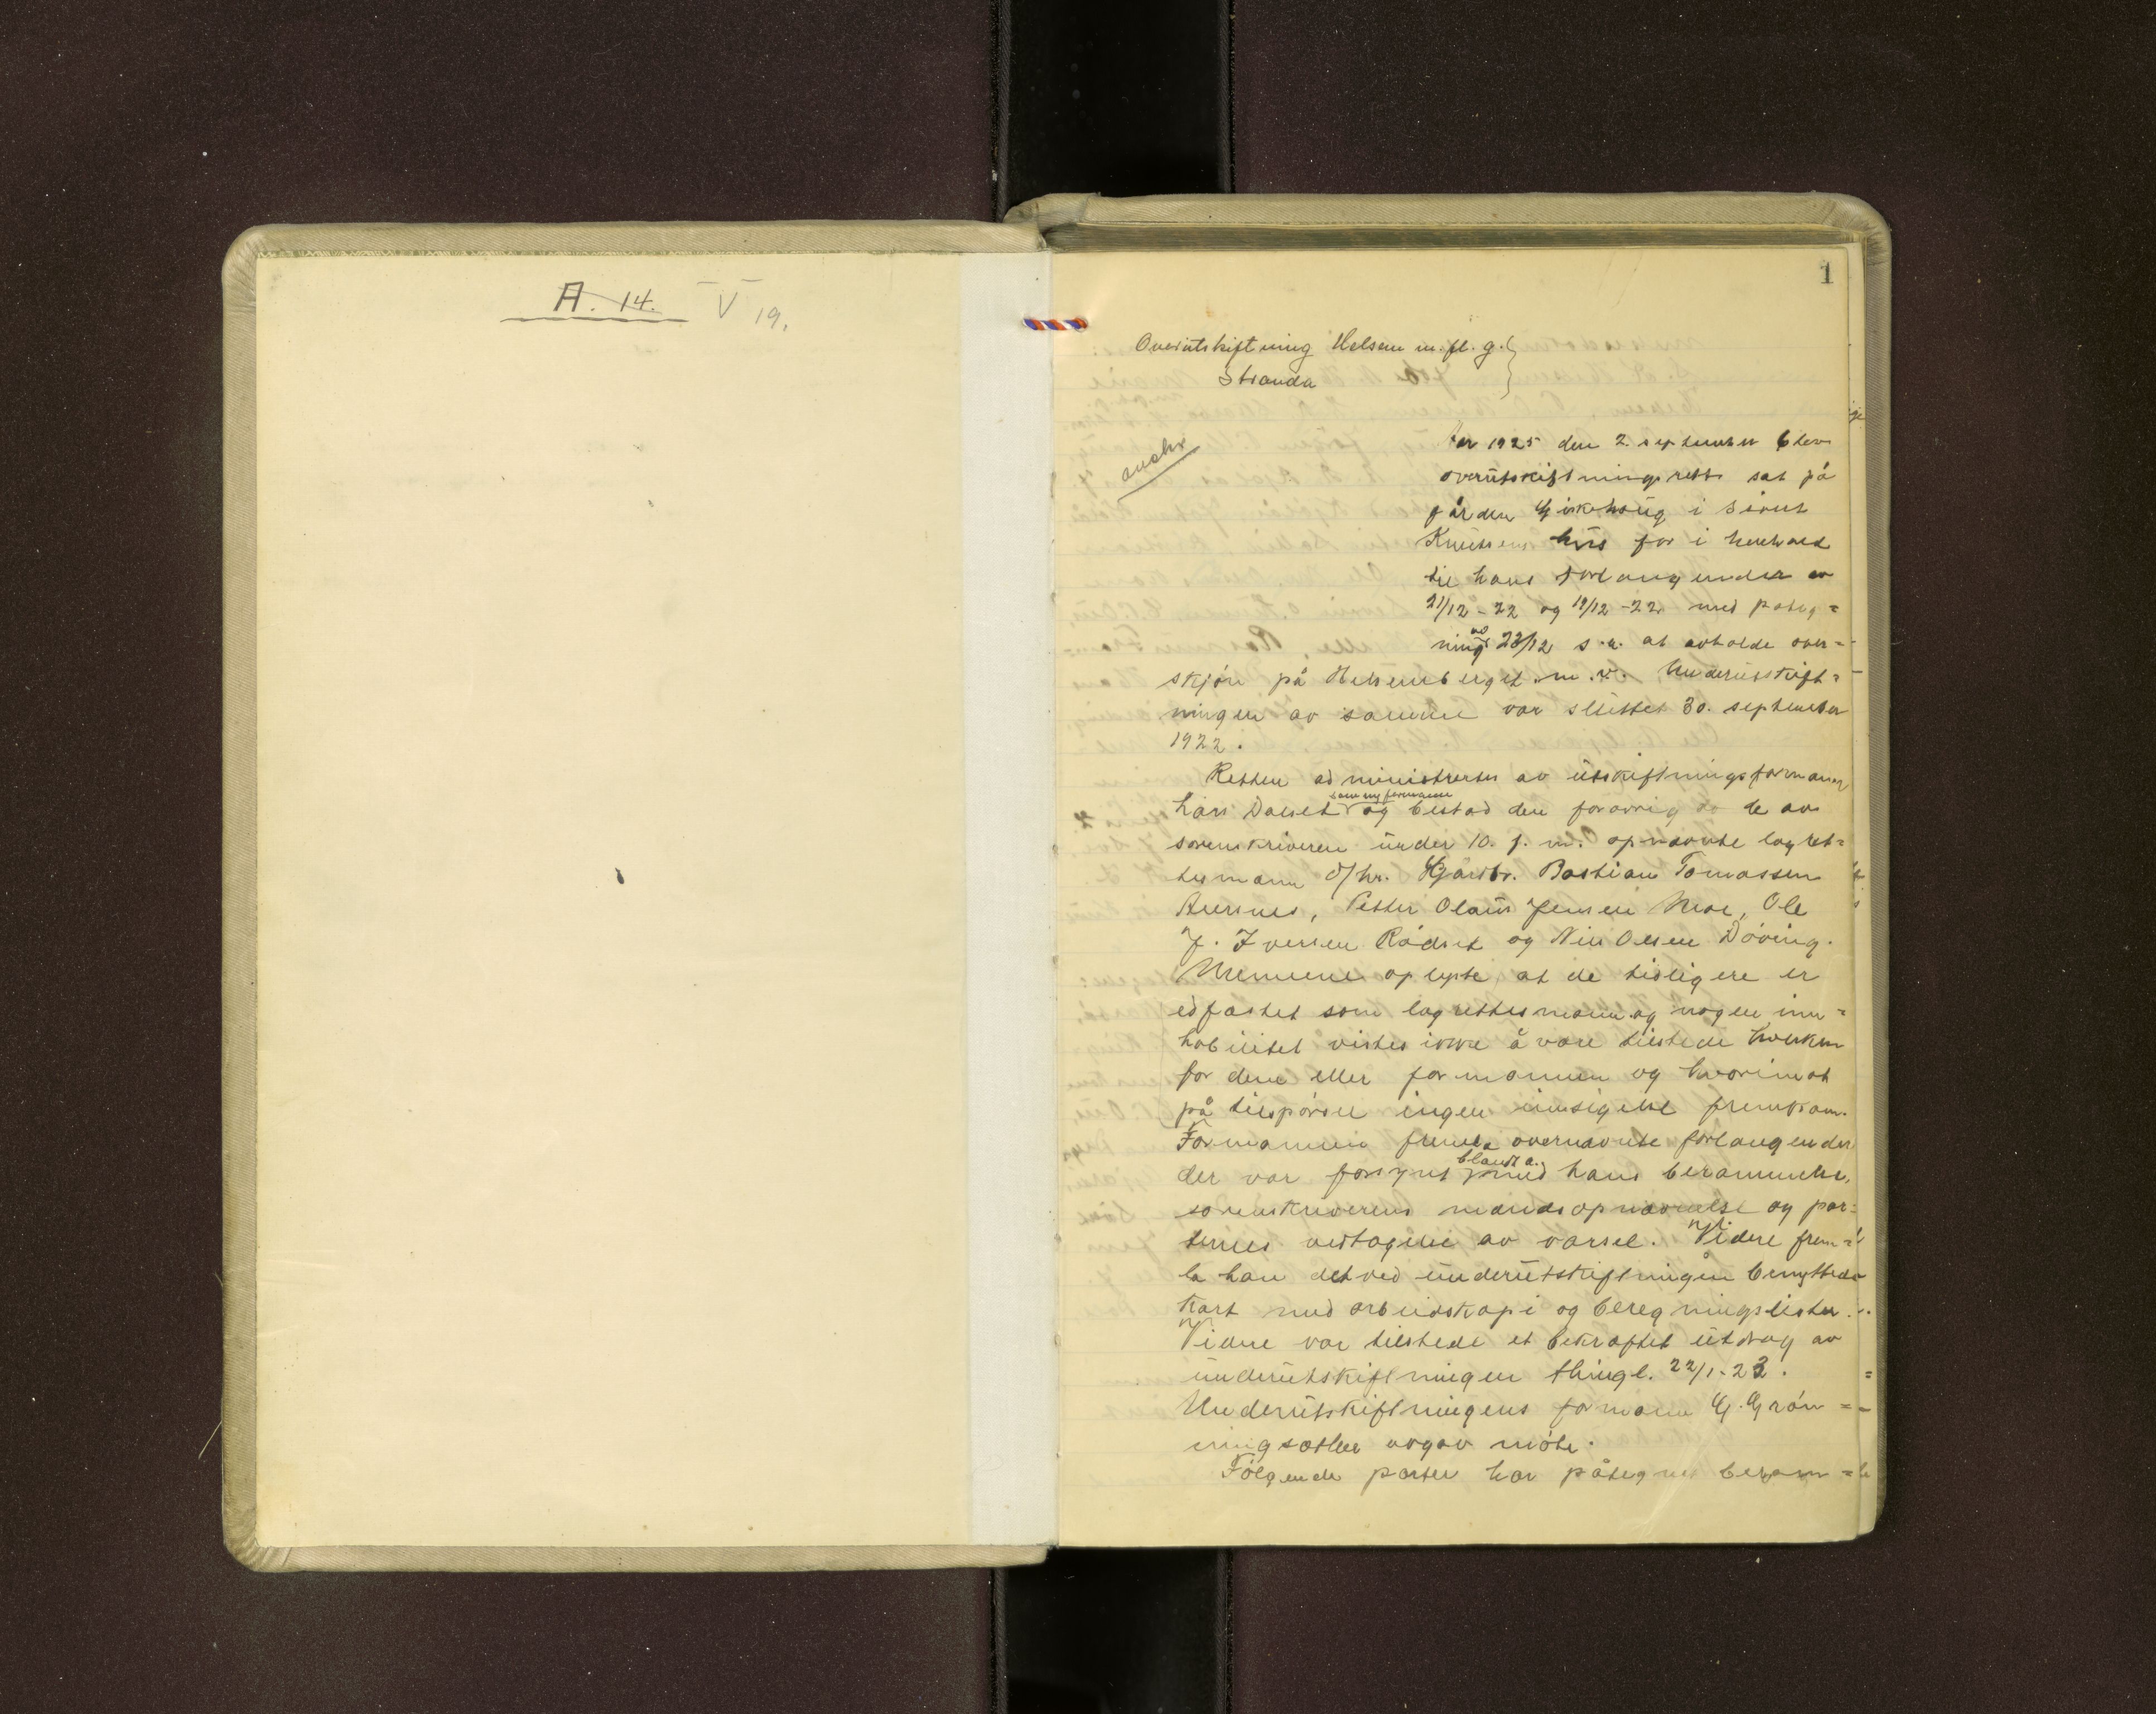 A. 14. V 19.
1
Overutskiftning Helsem m. fl. g.
Stranda
År 1925 den 2. september blev
overutskiftningsrett sat på
gården i Sivert
Knutsens hus for i henhold
til hans forlangender av
21/12 - 22 og 19/12 - 22 med påteg=
ning av 23/12 s. å. at avholde over=
skjön på Helsemberget m. v. Underutskift=
ningen av samme var sluttet 30. september
1922.
Retten administrertes av utskiftningsformann
Lars Dalset som ny formann og bestod den forövrig av de av
sorenskriveren under 10. f. m. opnævnte lagret=
tesmenn d/hr. Gårdbr. Bastian Tomassen
Aursnes, Petter Olaus Jensen Moe, Ole
J. Iversen Rödset og Nils Olsen Döving.
Mennene oplyste at de tidligere er
edfæstet som lagrettesmenn og nogen inn=
habilitet vistes ikke å være tilstede hverken
for dem eller formannen og hvorimot
på tilspörsel ingen innsigelse fremkom.
Formannen fremla overnævnte forlangender
der var forsynt blandt a. med hans berammelse,
sorenskriverens mandsopnævnelse og par=
ternes vedtagelse av varsel. Videre frem=
la han det ved underutskiftningen benyttede
kart med arbeidskopi og beregningslister.
Videre var tilstede et bekræftet utdrag av
underutskiftningen thingl. 22/1 - 23.
Underutskiftningens formann G. Grön=
ningsæther avgav möte.
Fölgende parter har påtegnet beram=